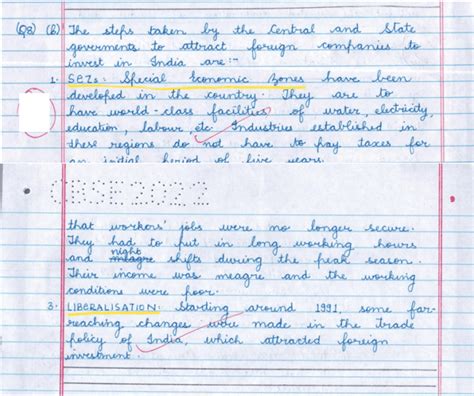 (Q8) (b) The steps taken by the Central and State
goverments to attract foreign companies to
invest in India are :-
1. SEZs: Special Economic Zones have been
developed in the country. They are to
have world-class facilities of water, electricity,
education, labour, etc. Industries established in
these regions do not have to pay taxes for
an initial period of five years.
CBSE2022
that workers' jobs were no longer secure.
They had to put in long working hours
and night shifts during the peak season.
Their income was meagre and the working
conditions were poor.
3. LIBERALISATION: Starting around 1991, some far-
reaching changes were made in the trade
policy of India, which attracted foreign
investment.